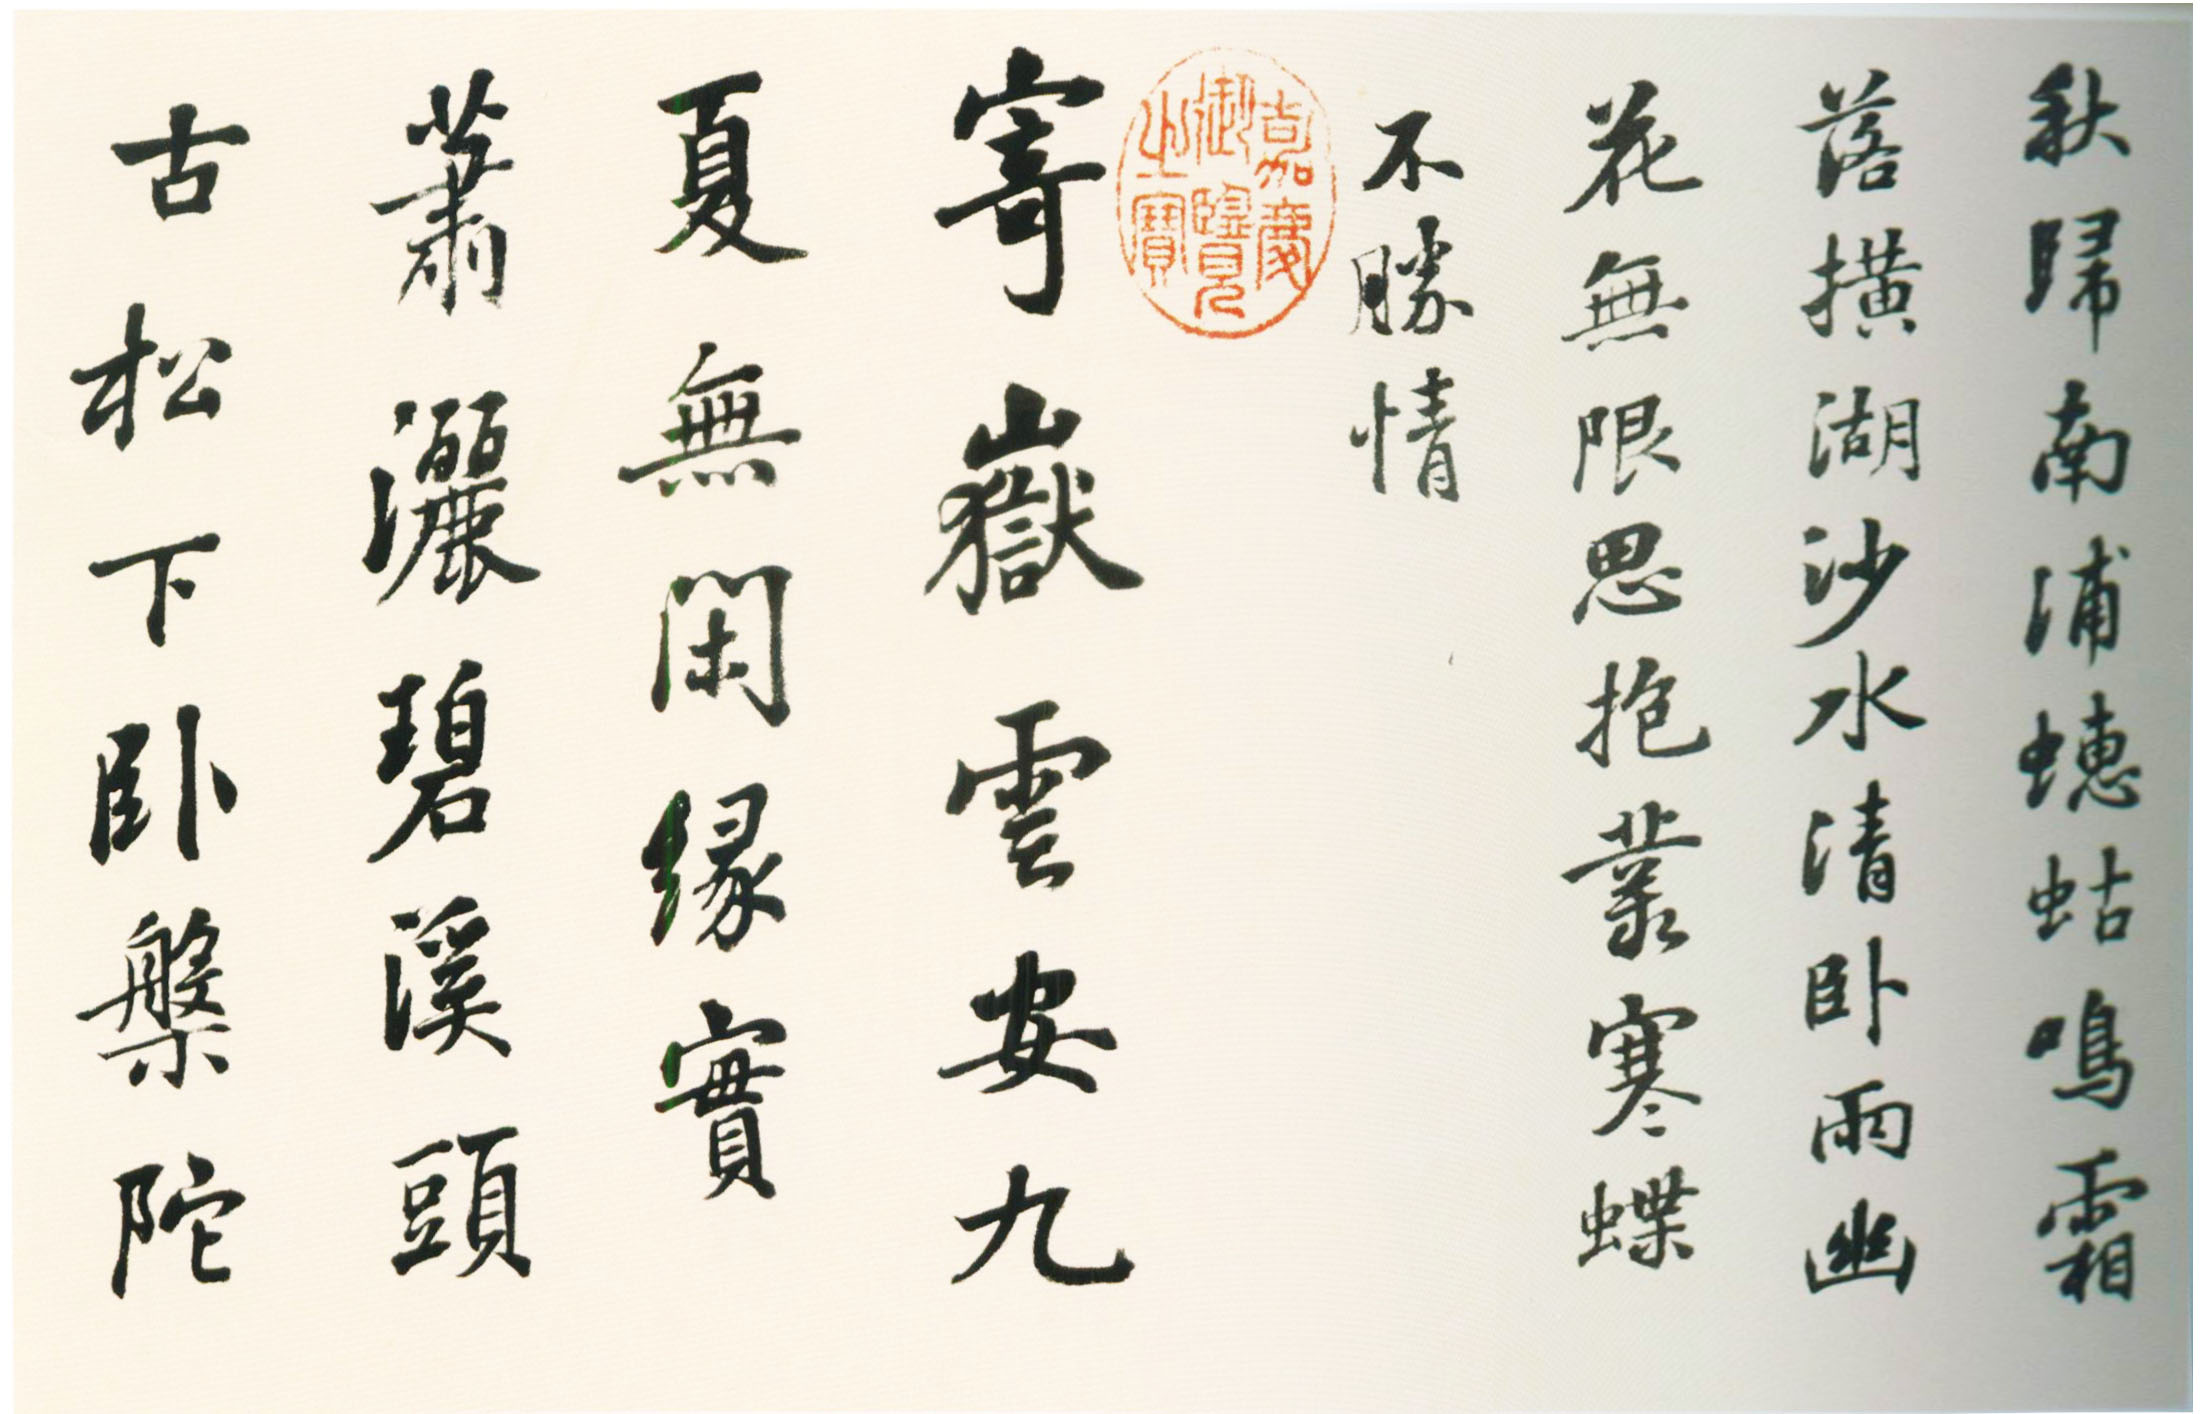 秋歸南浦蟪蛄鳴霜
落橫湖沙水清卧雨幽
花無限思抱叢寒蝶
不勝情
嘉慶
御覽
之寶
寄嶽雲安九
夏無閑緣實
蕭灑碧溪頭
古松下卧槃陀